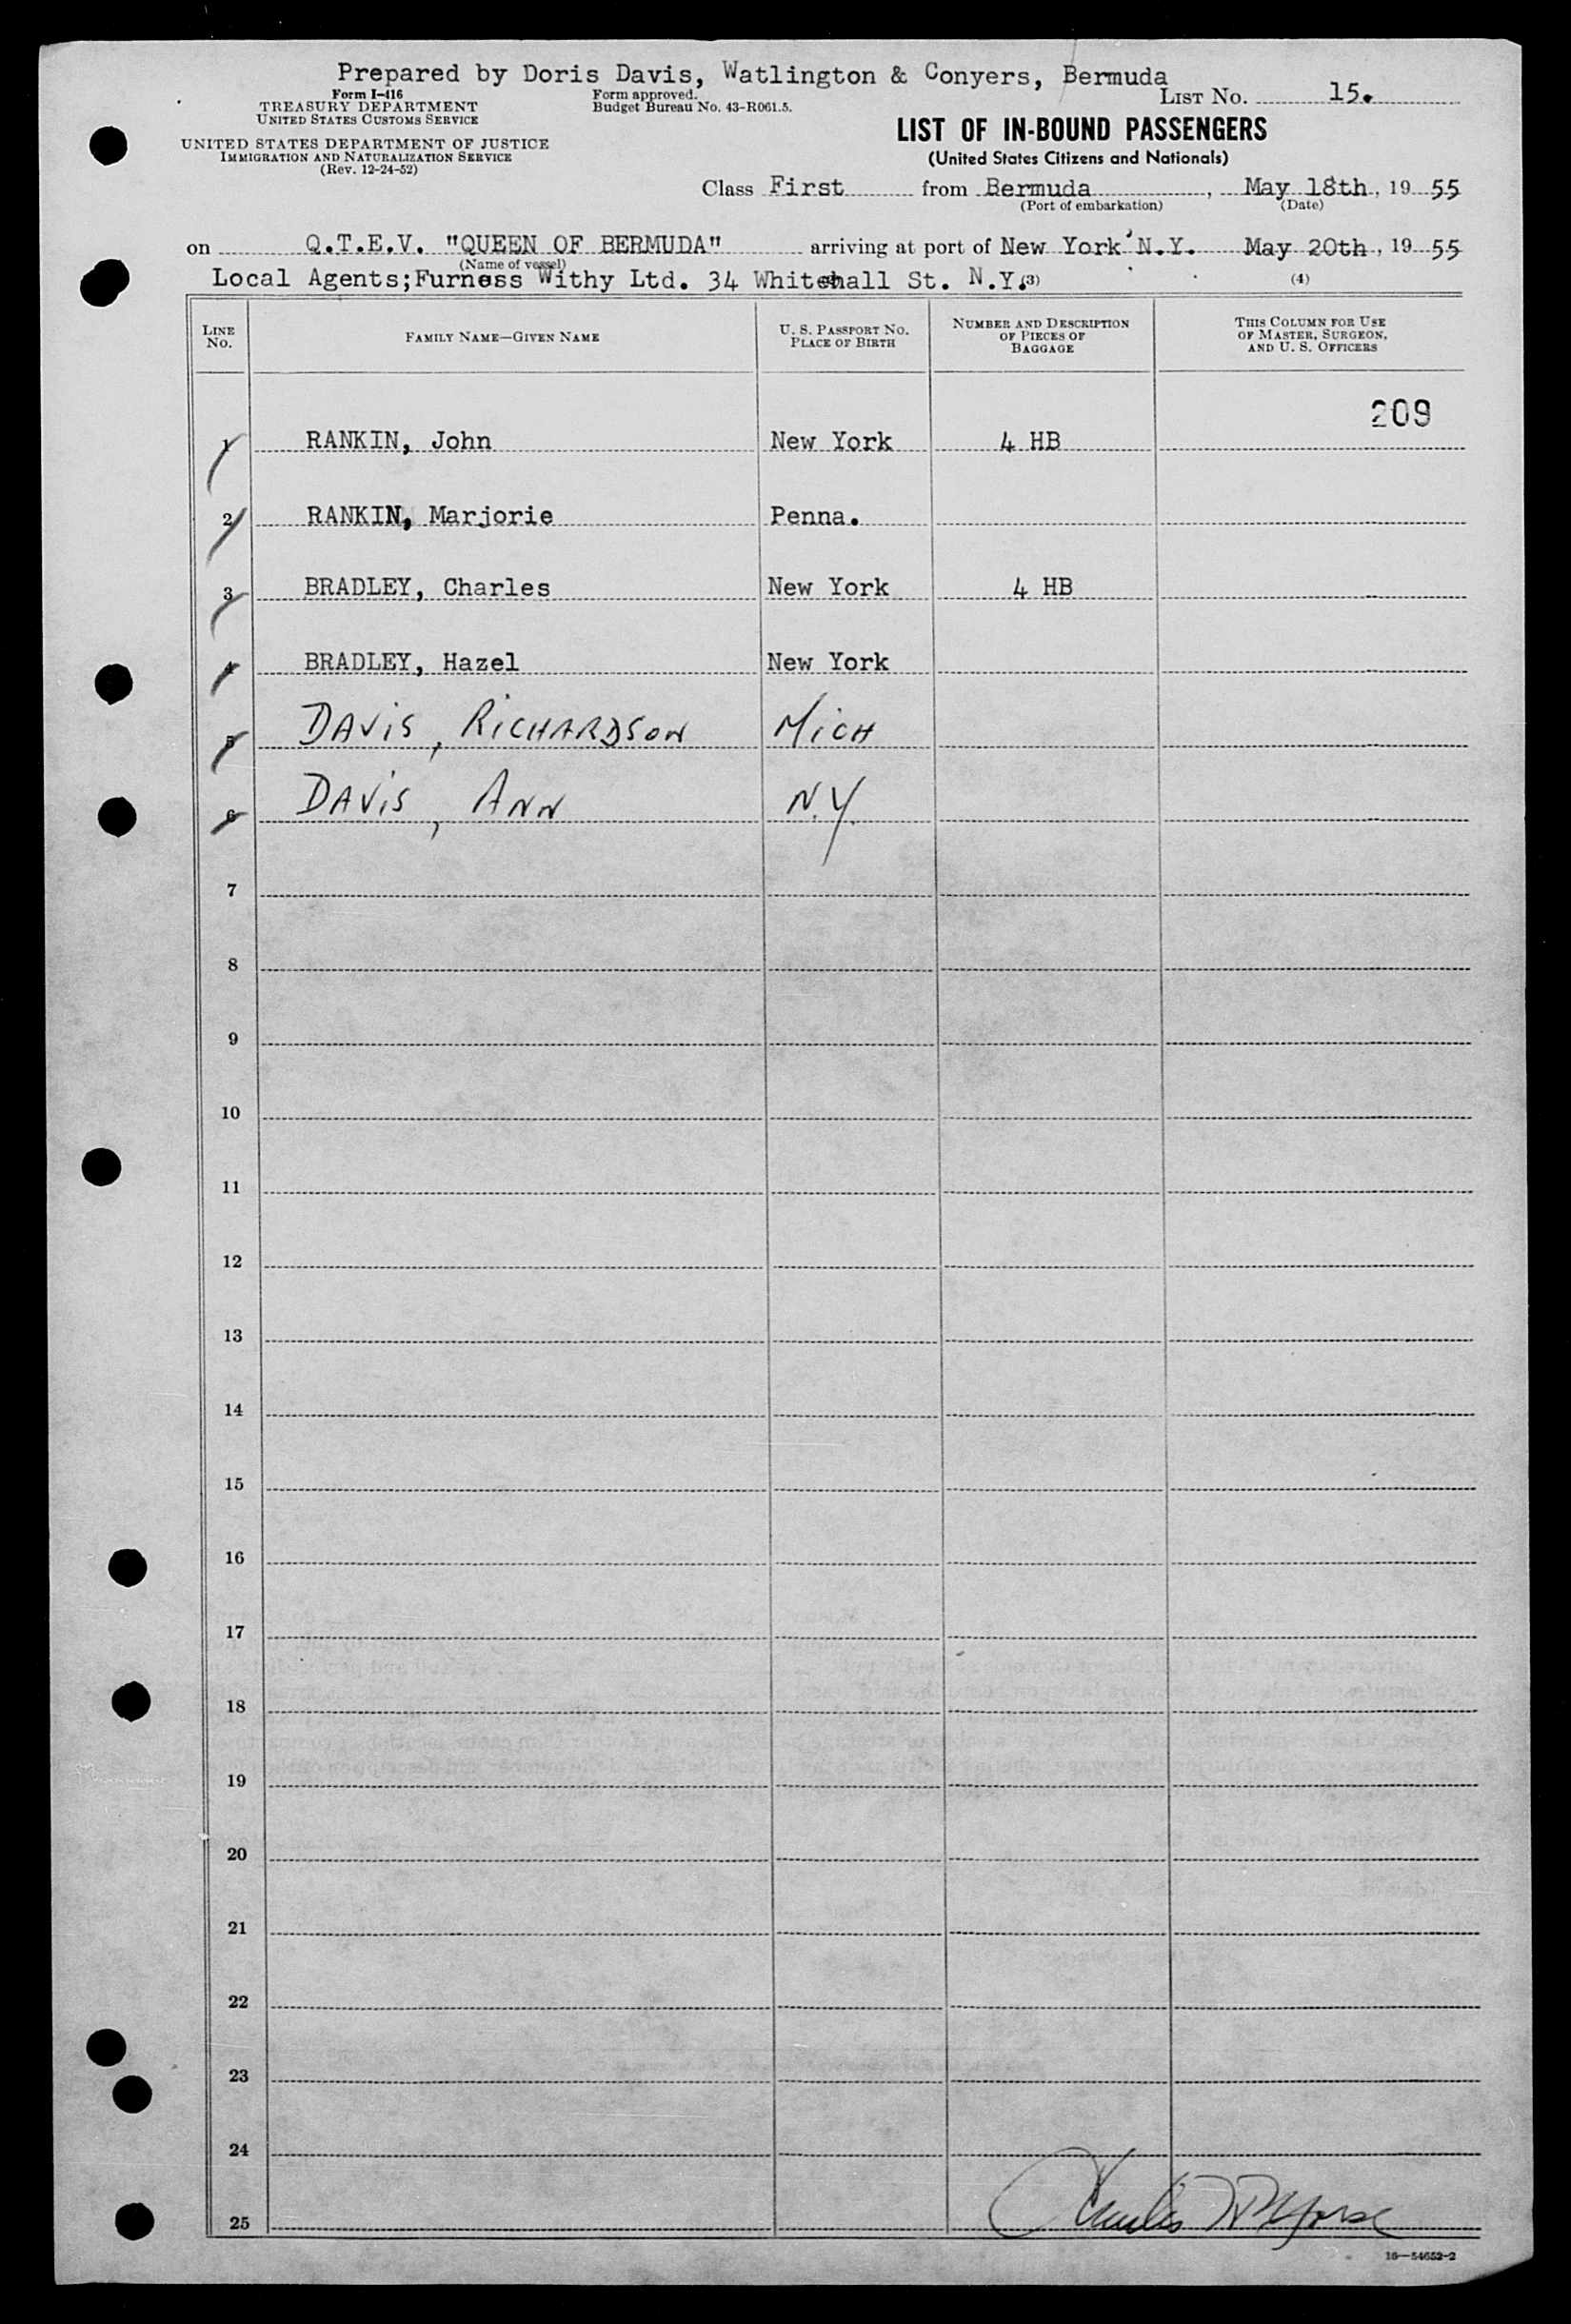 Prepared by Doris Davis, Watlington & Conyers, Bermuda
Form I-416
TREASURY DEPARTMENT
UNITED STATES CUSTOMS SERVICE
Form approved.
Budget Bureau No. 43-R061.5.
LIST NO. 15.
UNITED STATES DEPARTMENT OF JUSTICE
IMMIGRATION AND NATURALIZATION SERVICE
(Rev. 12-24-52)
LIST OF IN-BOUND PASSENGERS
(United States Citizens and Nationals)
Class First from Bermuda, May 18th, 19 55
(Port of embarkation) (Date)
on Q.T.E.V. "QUEEN OF BERMUDA" arriving at port of New York N.Y. May 20th, 19 55
(Name of vessel)
Local Agents;Furness Withy Ltd. 34 Whitehall St. N.Y. (3) (4)
LINE NO. FAMILY NAME—GIVEN NAME U. S. PASSPORT NO. PLACE OF BIRTH NUMBER AND DESCRIPTION OF PIECES OF BAGGAGE THIS COLUMN FOR USE OF MASTER, SURGEON, AND U. S. OFFICERS
209
1 RANKIN, John New York 4 HB
2 RANKIN, Marjorie Penna.
3 BRADLEY, Charles New York 4 HB
4 BRADLEY, Hazel New York
5 DAVIS, RICHARDSON MICH
6 DAVIS, ANN N.Y.
7
8
9
10
11
12
13
14
15
16
17
18
19
20
21
22
23
24
25
16—54652-2